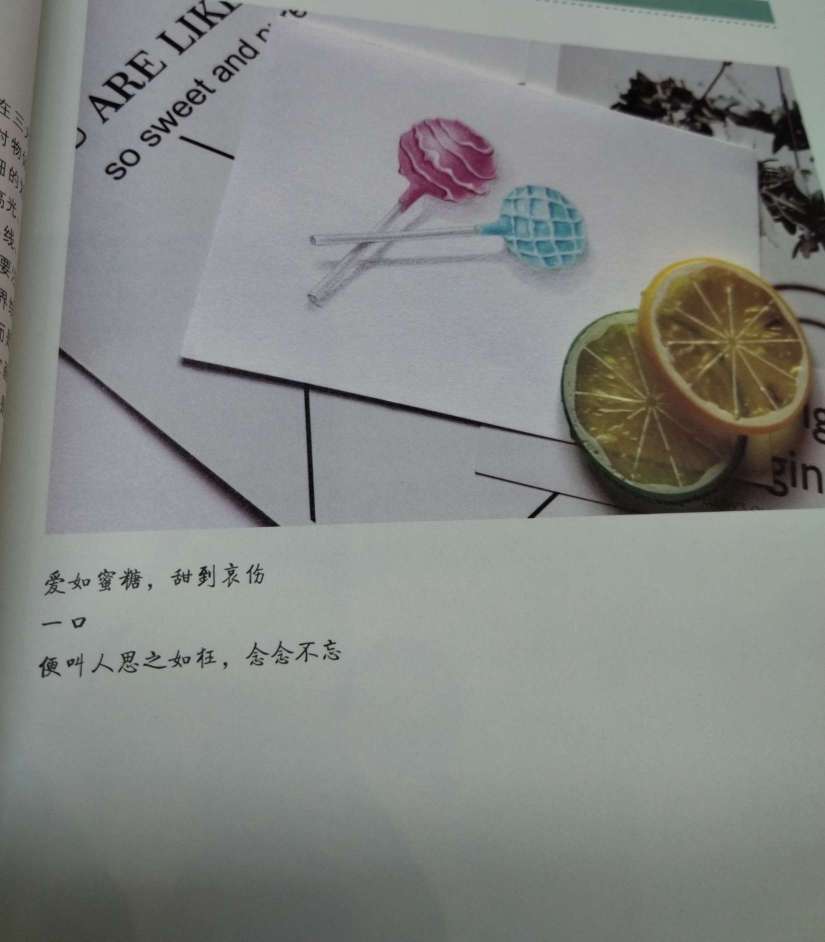 ARE LIK
so sweet and
gin
在三
时物
细的
高光
线
要
爱如蜜糖，甜到哀伤
一口
便叫人思之如枉，念念不忘